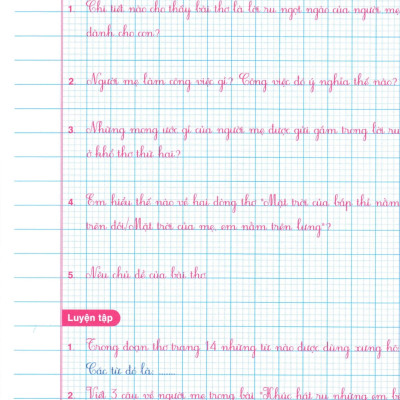 1. Chi tiết nào cho thấy bài thơ là lời ru ngọt ngào của người mẹ
dành cho con?
2. Người mẹ làm công việc gì? Công việc đó ý nghĩa thế nào?
3. Những mong ước gì của người mẹ được gửi gắm trong lời ru
ở khổ thơ thứ hai?
4. Em hiểu thế nào về hai dòng thơ "Mặt trời của bắp thì nằm
trên đồi/Mặt trời của mẹ, em nằm trên lưng"?
5. Nêu chủ đề của bài thơ.
Luyện tập
1. Trong đoạn thơ trang 14 những từ nào được dùng xưng hô:
Các từ đó là: ......
2. Viết 3 câu về người mẹ trong bài "Khúc hát ru những em b